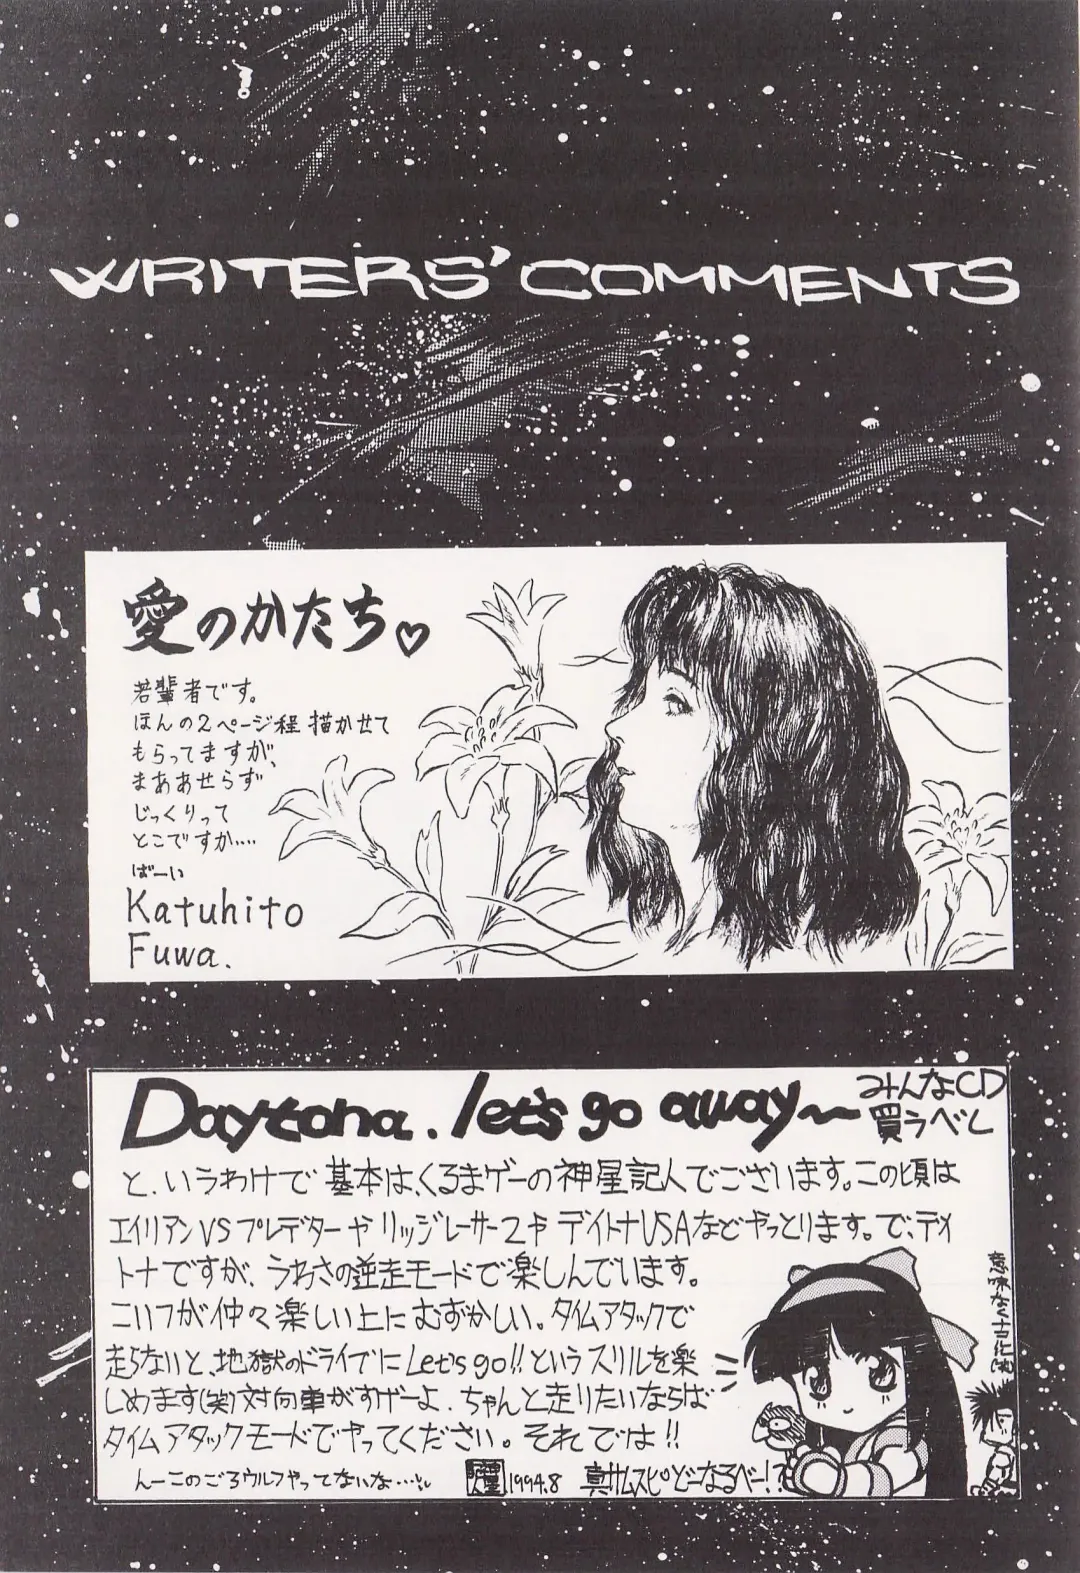 WRITERS' COMMENTS
愛のかたち♡
若輩者です。
ほんの2ページ程 描かせて
もらってますが、
まああせらず
じっくりって
とこですか‥‥
ばーい
Katuhito
Fuwa.
Daytona. let's go away〜
みんなCD
買うべし
と、いうわけで 基本は、くるまゲーの神星記人でございます。この頃は
エイリアンVSプレデターや リッジレーサー2や デイトナUSAなどやっとります。で、デイ
トナですが、うわさの逆走モードで楽しんでいます。
こいつが仲々楽しい上にむずかしい。タイムアタックで
走らないと、地獄のドライブにLet's go!!というスリルを楽
しめます(笑)対向車がすげーよ、ちゃんと走りたいならば
タイムアタックモードでやってください。それでは!!
んーこのごろウルフやってないな…
1994.8
真サムスピどーなるべー!?
意味なくナコルル(笑)